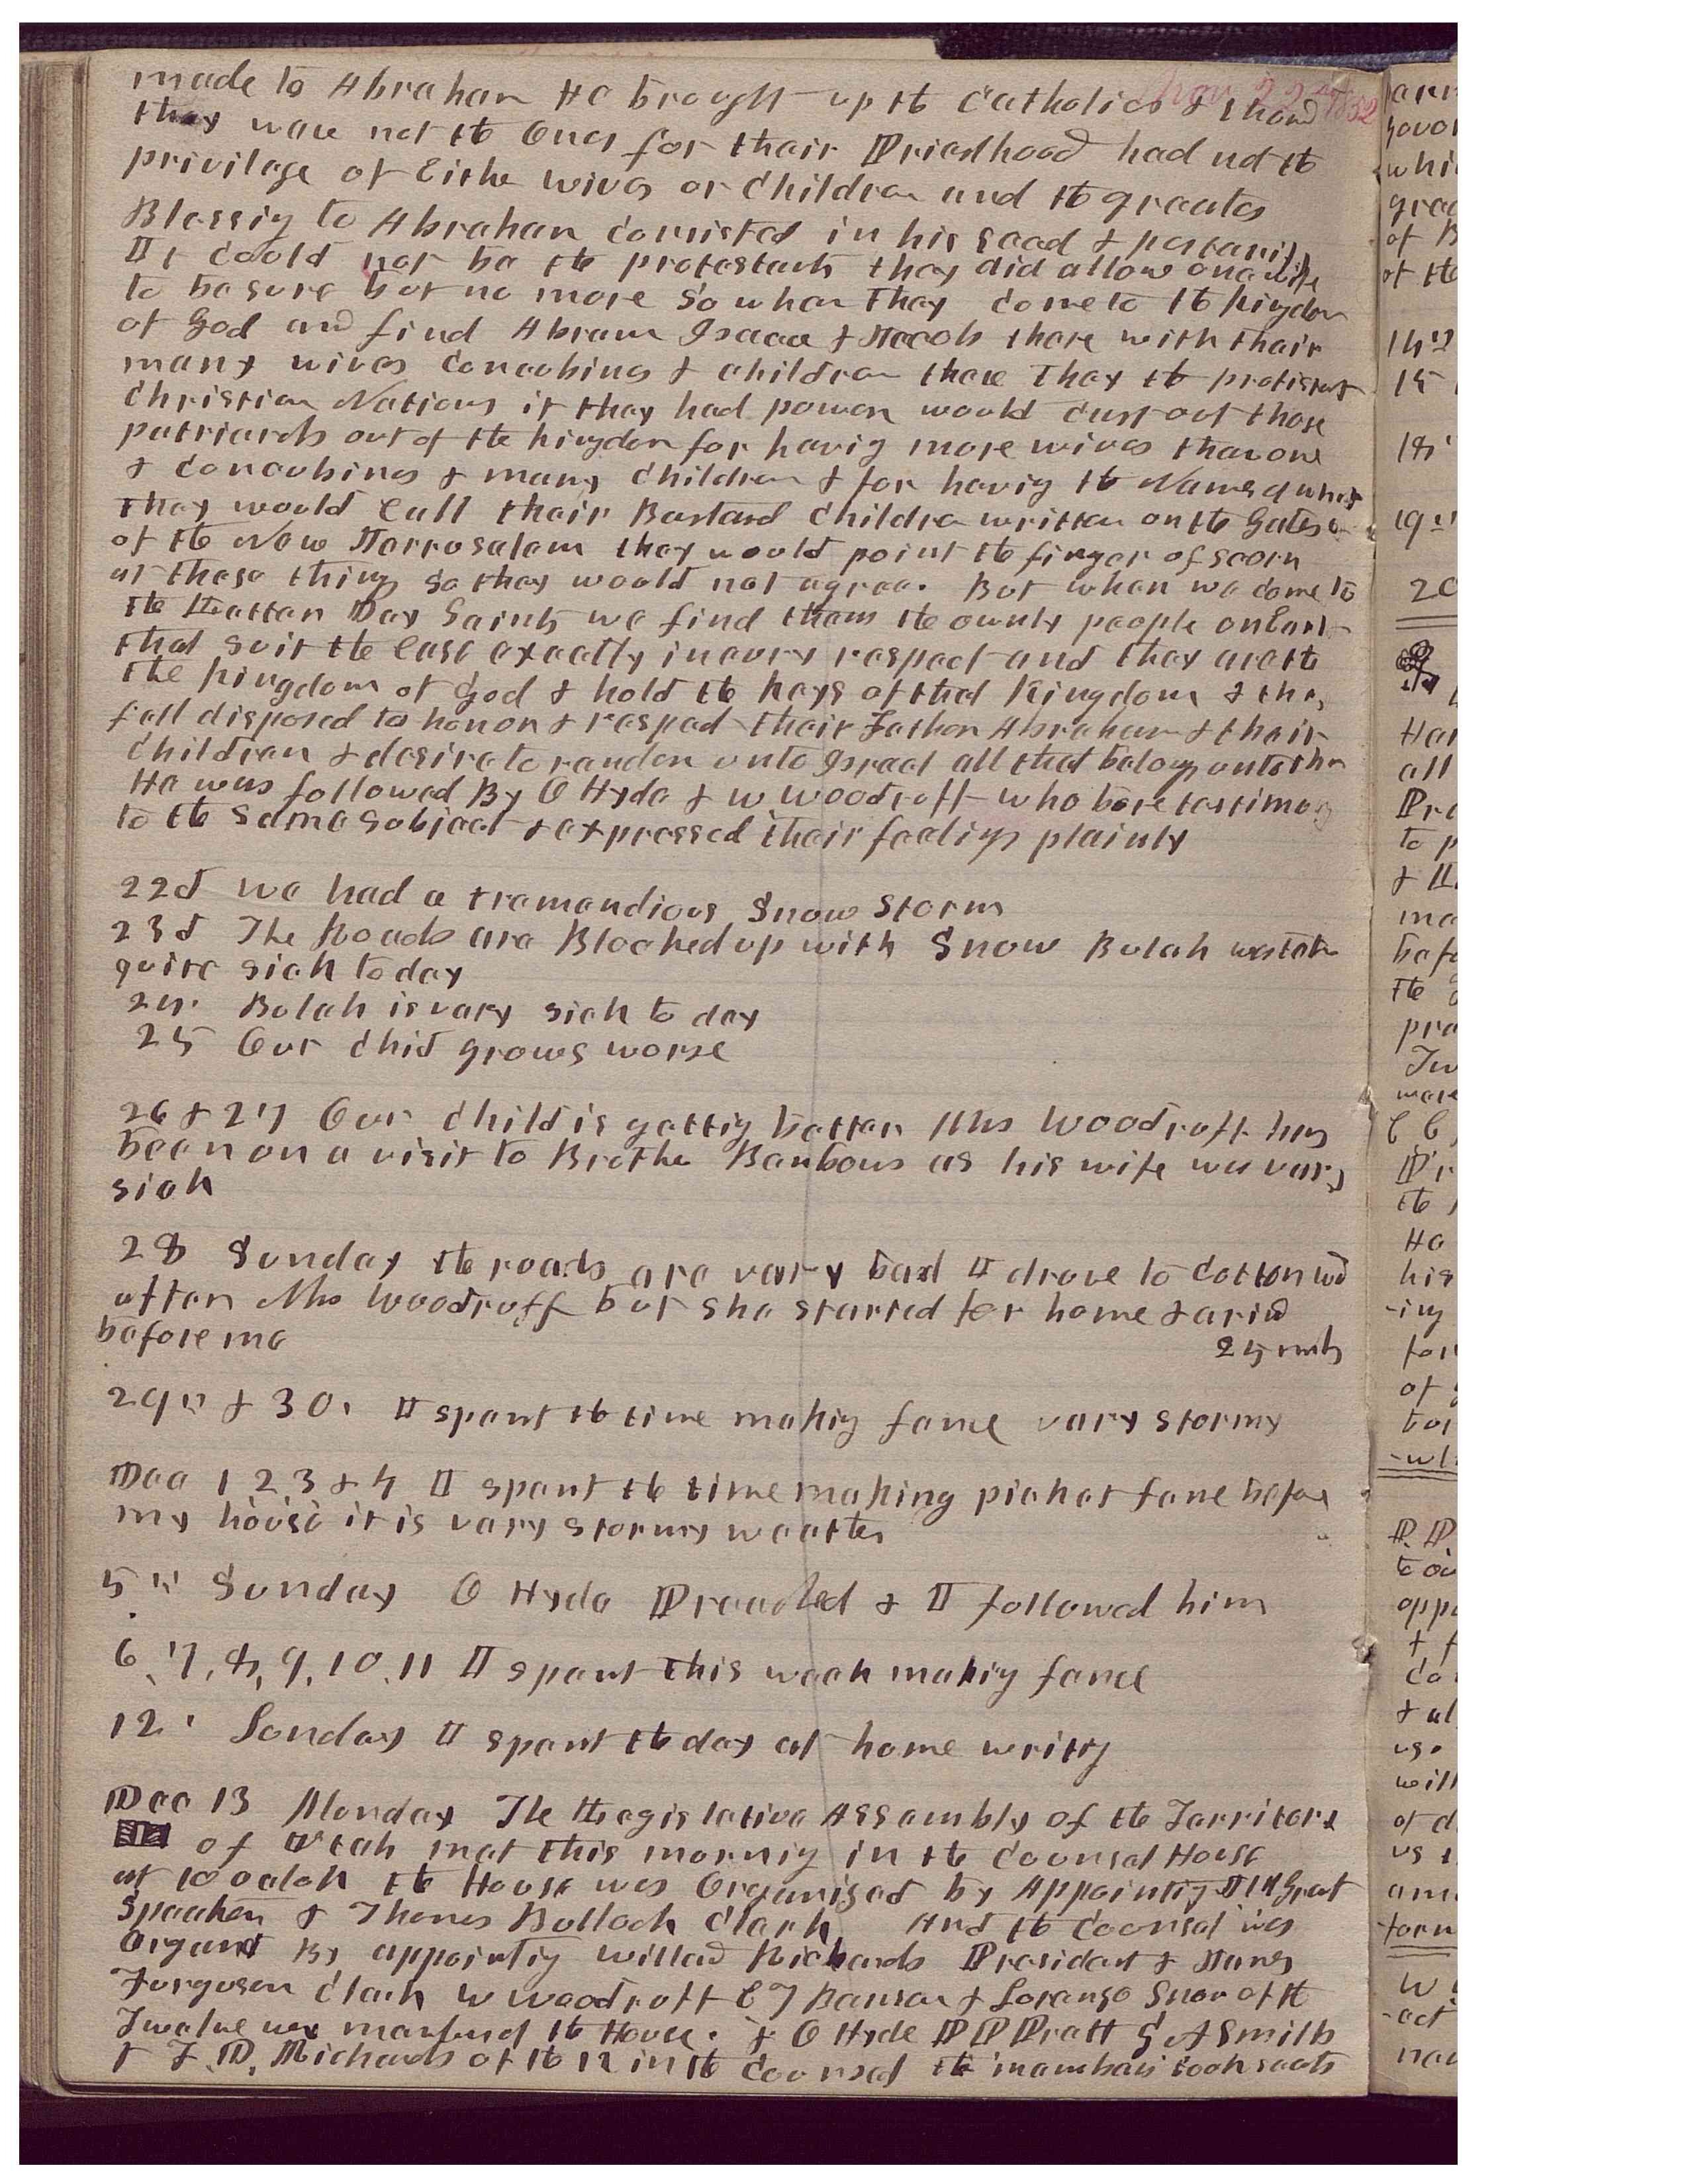 Nov 22nd 1852
made to Abraham He brought up the Catholics & showd
they ware not the Ones for their Priesthood had not the
privilage of Eithe wives or Children and the greates
Blessig to Abraham consisted in his seed & posterity
It could not be the protestants they did allow one wife
to be sure but no more so when they come to the kingdom
of God and find Abram Isaac & Jacob there with their
many wives concubines & children thare They the protistant
Christian Nations if they had power would cast out those
patriarchs out of the kingdom for havig more wives than one
& concubines & many children & for havig the Names of what
They would Call their Bastard Children written on the Gates
of the New Jerrusalem they would point the finger of scorn
at these things so they would not agree. But when we come to
the Latter Day Saints we find them the ownly people on Earth
that suit the case exactly in every respect and they are the
the kingdom of God & hold the keys of that Kingdom & they
feel disposed to honor & respect their Father Abraham & their
Children & desire to render unto Israel all that belongs unto them
He was followed By O Hyde & W Woodruff who bore testimony
to the same subject & expressed their feelings plainly
22d We had a tremendious Snow Storm
23d The Roads are Blocked up with Snow Bulah was taken
quite sick to day
24. Bulah is very sick to day
25 Our Child grows worse
26 & 27 Our Child is gettig better Mrs Woodruff has
been on a visit to Brothe Benbows as his wife was very
sick
28 Sunday the roads are very bad I drove to Cottonwd
after Mrs Woodruff but she started for home & arivd
before me 25 mls
29th & 30. I spent the time makig fence very stormy
Dec 1 2 3 & 4 I spent the time making picket fence before
my house it is very stormy weather
5th Sunday O Hyde Preached & I followed him
6, 7, 8, 9, 10, 11 I spent this week makig fence
12th Sunday I spent the day at home writig
Dec 13 Monday The Legislative Assembly of the Territory
of Utah met this mornig in the Counsel House
at 10 oclok the House was Organized by Appointig J M Grant
Speaker & Thomas Bullock Clark And the Counsel was
Organd By appointig Willard Richards President & James
Furguson Clark W Woodruff E T Benson & Lorenzo Snow of the
Twelve was members of the House. & O Hyde P P Pratt G A Smith
& F. D. Richards of the 12 in the Counsel the members took seats